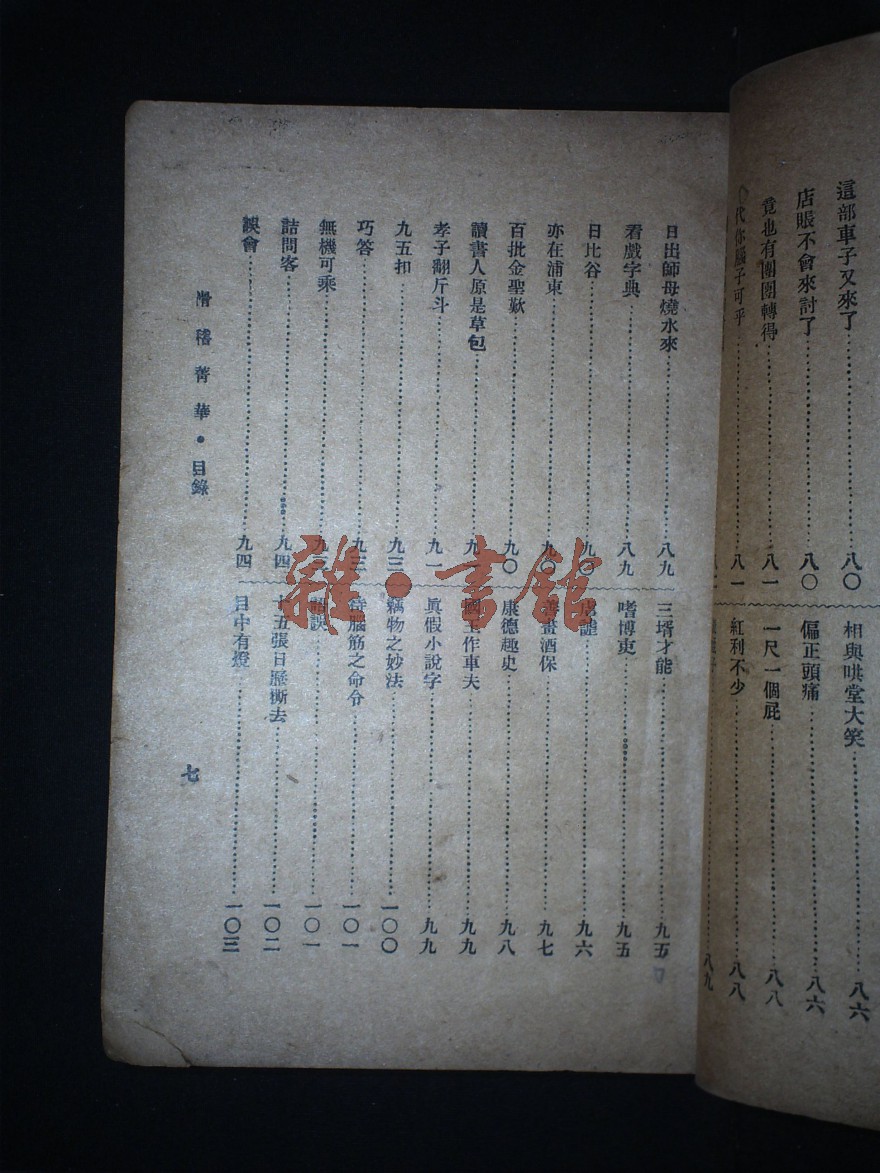 這部車子又來了……八〇
店賬不會來討了……八〇
竟也有團團轉得……八一
代你腦子可乎……八一
相與哄堂大笑……八六
偏正頭痛……八六
一尺一個屁……八八
紅利不少……八八
八九
日出師母燒水來……八九
看戲字典……八九
日比谷……九〇
亦在浦東……九〇
百批金聖歎……九〇
讀書人原是草包……九
孝子翻斤斗……九一
九五扣……九三
巧答……九三
無機可乘……九
詰問客……九四
誤會……九四
三壻才能……九五
嗜博吏……九五
虛……九六
畫酒保……九七
康德趣史……九八
國王作車夫……九九
眞假小說字……九九
竊物之妙法……一〇〇
腦筋之命令……一〇一
誤……一〇一
十五張日歷撕去……一〇二
目中有燈……一〇三
滑稽菁華・目錄
七
雜・書館